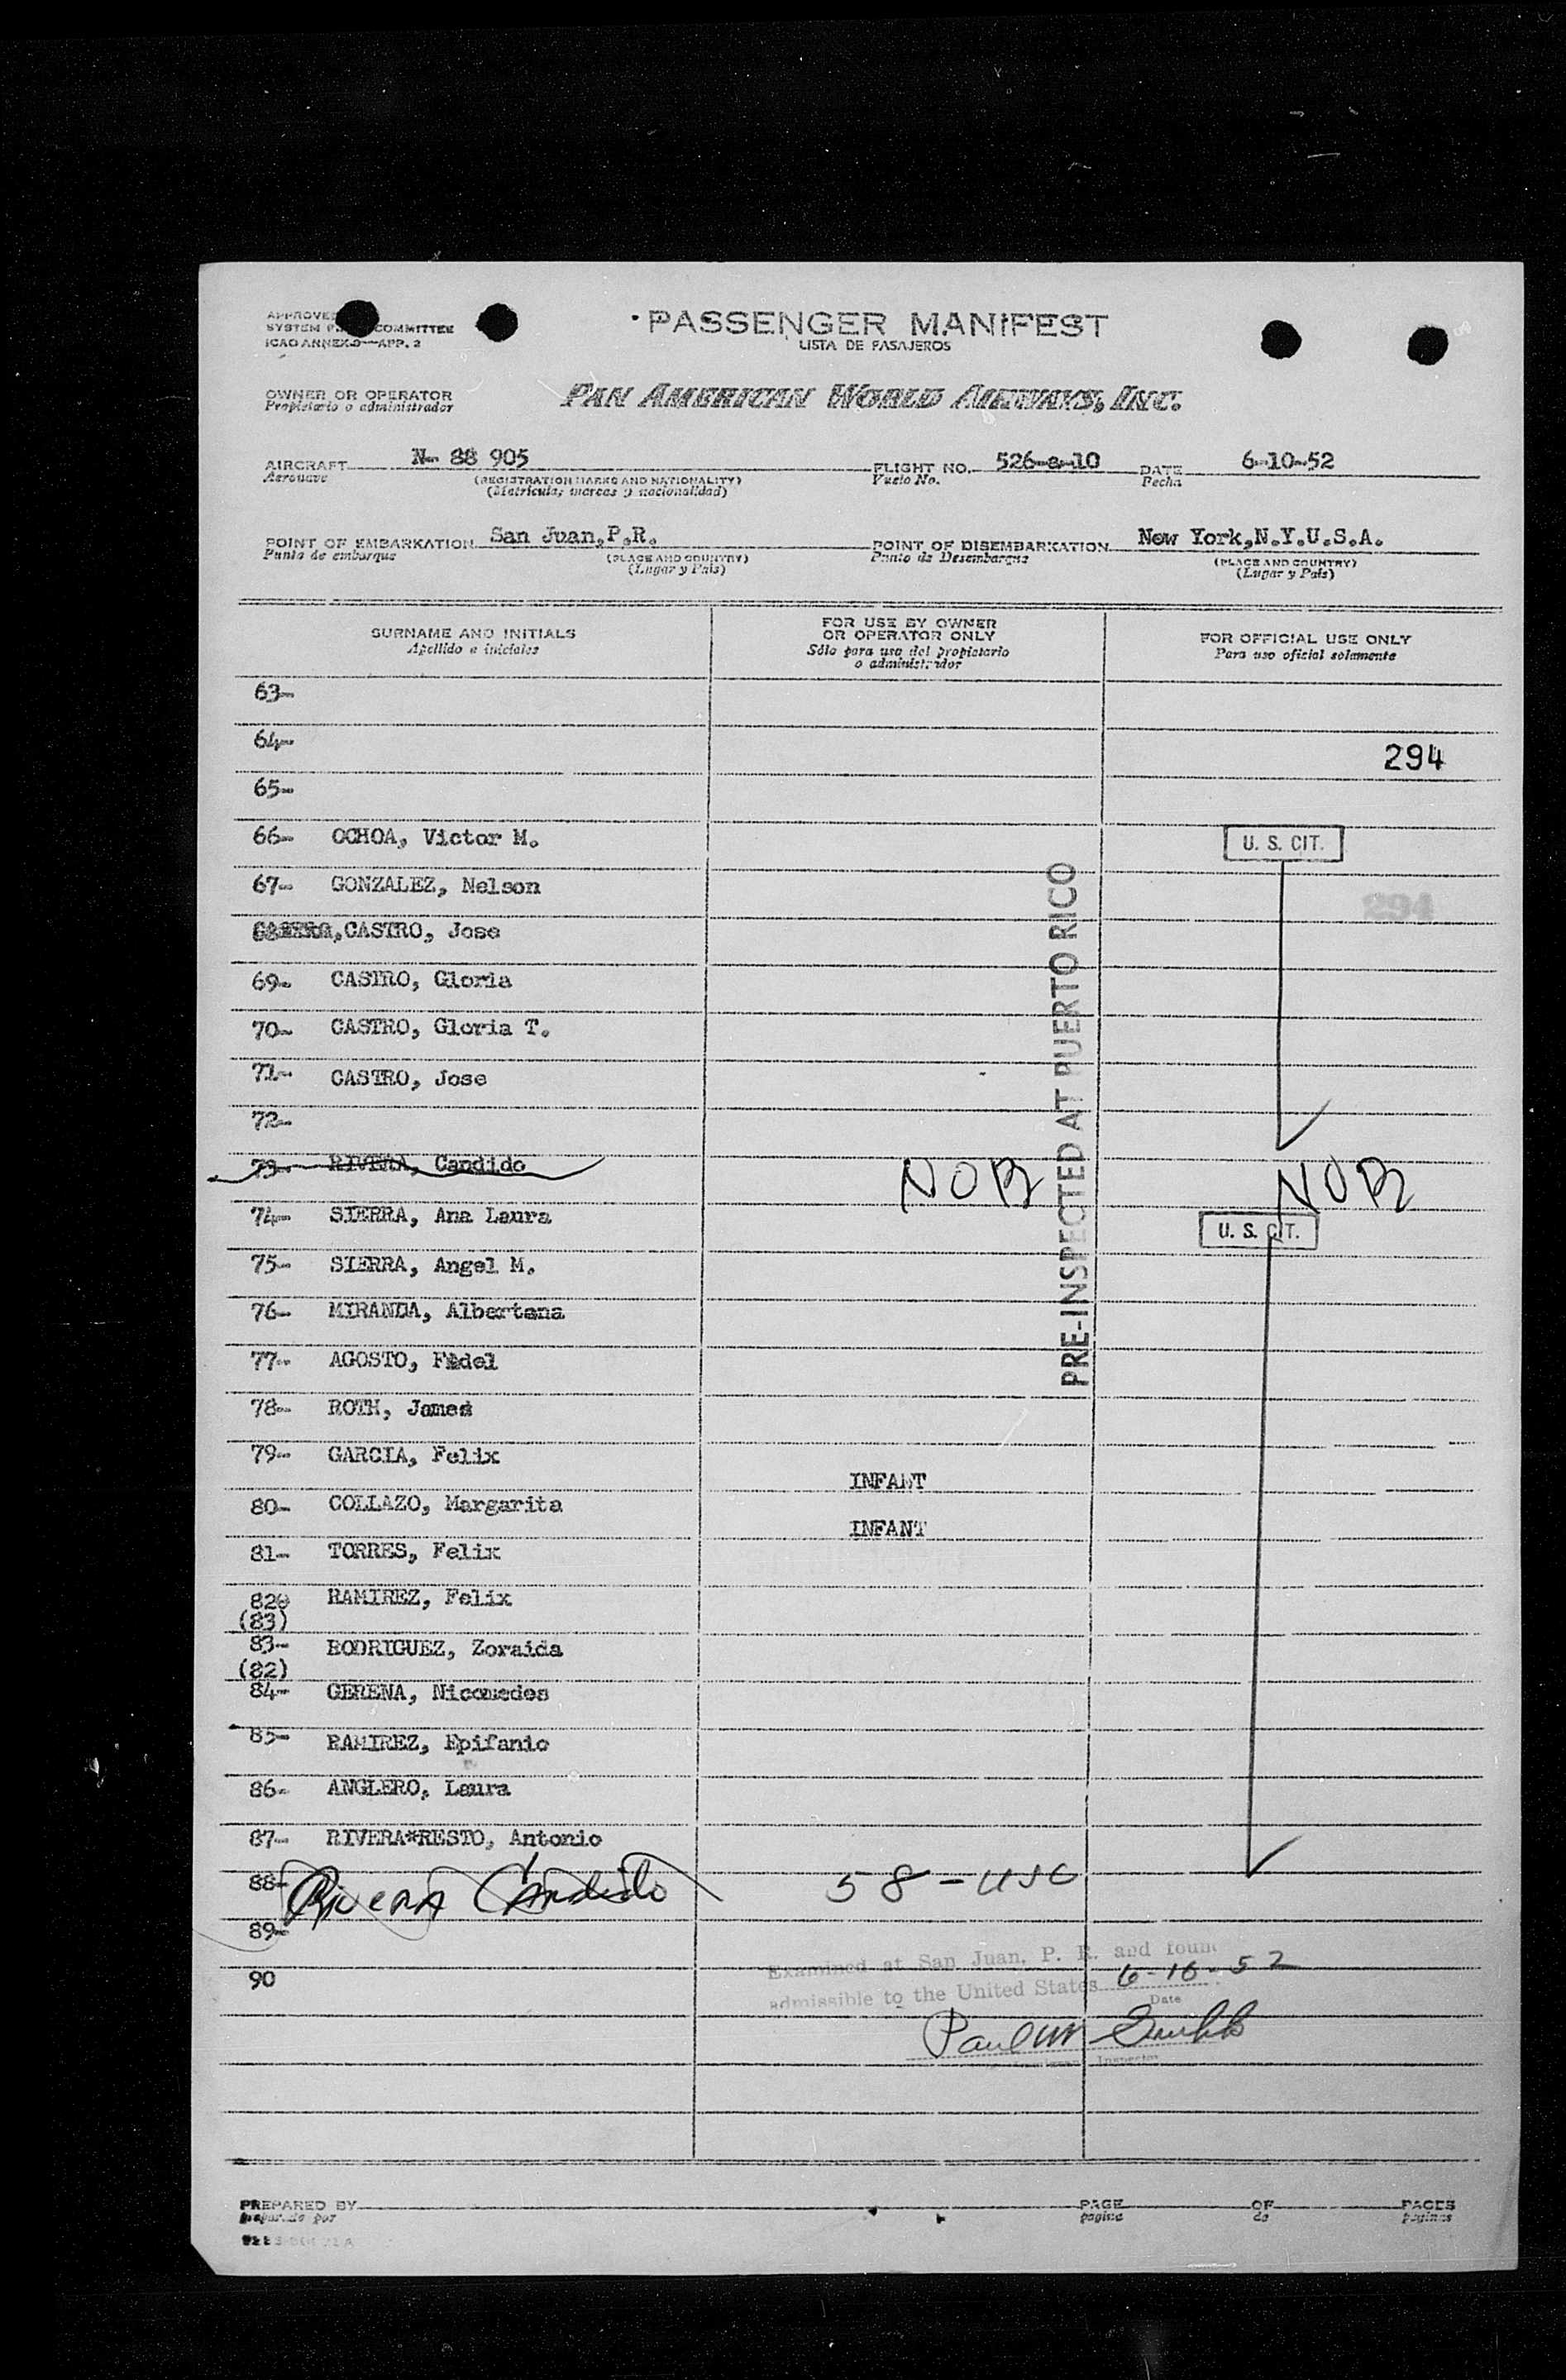 SYSTEM COMMITTEE
ICAO ANNEX 9—APP. 2
PASSENGER MANIFEST
LISTA DE PASAJEROS
OWNER OR OPERATOR
Propietario o administrador
PAN AMERICAN WORLD AIRWAYS, INC.
AIRCRAFT N- 88 905 FLIGHT NO. 526-8-10 DATE 6-10-52
Aeronave (REGISTRATION MARKS AND NATIONALITY) Vuelo No. Fecha
(Matrícula, marcas y nacionalidad)
POINT OF EMBARKATION San Juan,P.R. POINT OF DISEMBARKATION New York,N.Y.U.S.A.
Punto de embarque (PLACE AND COUNTRY) Punto de Desembarque (PLACE AND COUNTRY)
(Lugar y País) (Lugar y País)
SURNAME AND INITIALS
Apellido e iniciales
FOR USE BY OWNER
OR OPERATOR ONLY
Sólo para uso del propietario
o administrador
FOR OFFICIAL USE ONLY
Para uso oficial solamente
63-
64-
294
65-
66- OCHOA, Victor M. U. S. CIT.
67- GONZALEZ, Nelson
294
CASTRO, Jose
69- CASTRO, Gloria
70- CASTRO, Gloria T.
71- CASTRO, Jose
72-
73- RIVERA, Candido NOR NOR
74- SIERRA, Ana Laura U. S. CIT.
75- SIERRA, Angel M.
76- MIRANDA, Albertana
77- AGOSTO, Fidel
78- ROTH, James
79- GARCIA, Felix
INFANT
80- COLLAZO, Margarita
INFANT
81- TORRES, Felix
82- RAMIREZ, Felix
(83)
83- RODRIGUEZ, Zoraida
(82)
84- GERENA, Nicomedes
85- RAMIREZ, Epifanio
86- ANGLERO, Laura
87- RIVERA*RESTO, Antonio
88- Rivera Candido 58-USC
89-
90
PRE-INSPECTED AT PUERTO RICO
Examined at San Juan, P. R. and found
admissible to the United States 6-10-52
Date
Paul W Smith
Inspector
PREPARED BY PAGE OF PAGES
preparado por pagina de paginas